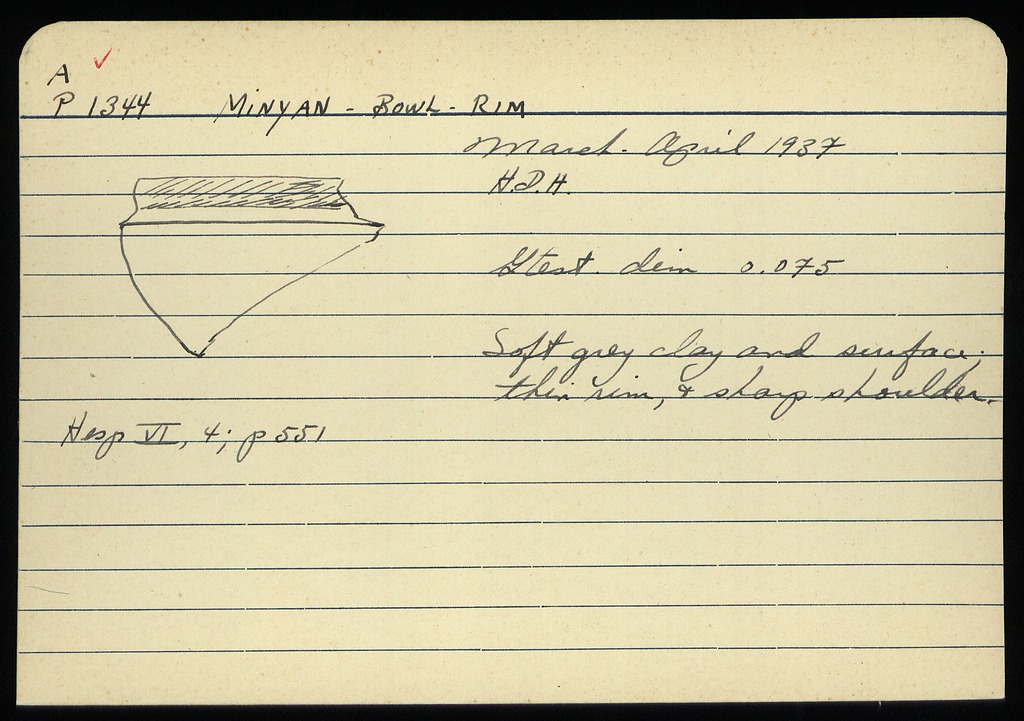 A ✓
P 1344 MINYAN - BOWL - RIM
March - April 1937
H.D.H.
Gtest. dim 0.075
Soft grey clay and surface;
thin rim, & sharp shoulder.
Hesp VI, 4; p 551